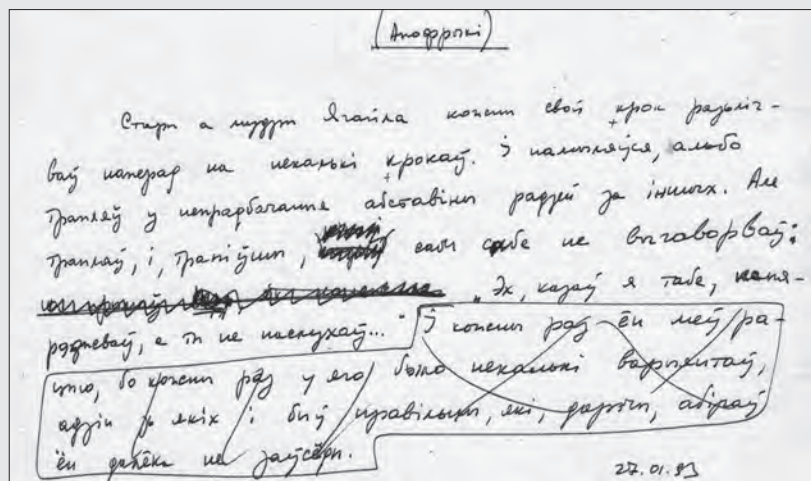 (Апокрыфы)
Стары а мудры Ягайла кожны свой крок разліч-
ваў наперад на некалькі крокаў. І памыляўся, альбо
трапляў у непрадбачаныя абставіны радзей за іншых. Але
трапляў, і, трапіўшы, сам сабе не выгаворваў:
"Эх, казаў я табе, папя-
рэджваў, а ты не паслухаў..." І кожны раз ён меў ра-
цыю, бо кожны раз у яго было некалькі варыянтаў,
адзін з якіх і быў правільны, які, дарэчы, абіраў
ён далёка не заўсёды.
27.01.93